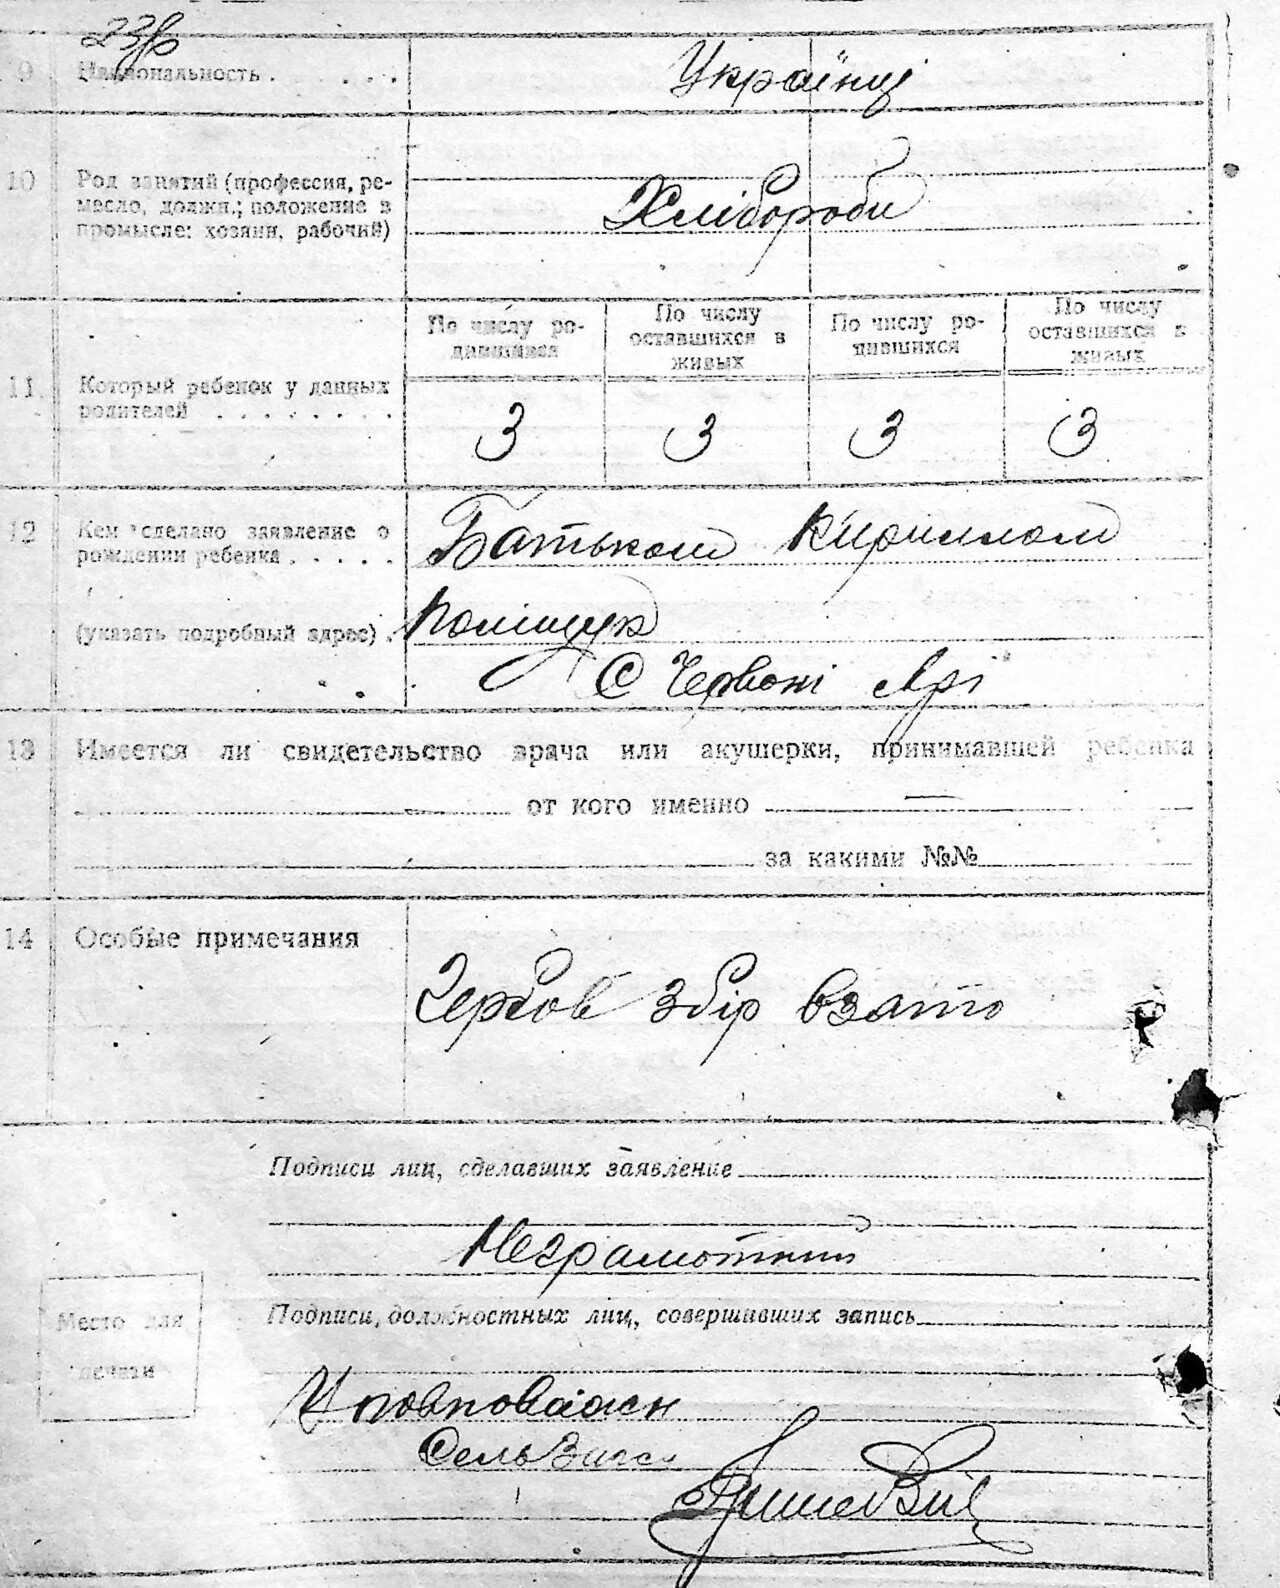 23р
9 Национальность . . . . . Українці
10 Род занятий (профессия, ре-
месло, должн.; положение в
промысле: хозяин, рабочий)
Хлібороби
По числу ро-
дившихся
По числу
оставшихся в
живых
По числу ро-
дившихся
По числу
оставшихся в
живых
11 Который ребенок у данных
родителей . . . . . . . .
3 3 3 3
12 Кем сделано заявление о
рождении ребенка . . . . .
Батьком Кириллом
(указать подробный адрес) .
Поліщук
С Червоні
13 Имеется ли свидетельство врача или акушерки, принимавшей ребенка
от кого именно —
за какими №№
14 Особые примечания
збір взято
Подписи лиц, сделавших заявление
Неграмотний
Подписи, должностных лиц, совершивших запись
Место для
печати
Уповноважн
СельЗагс